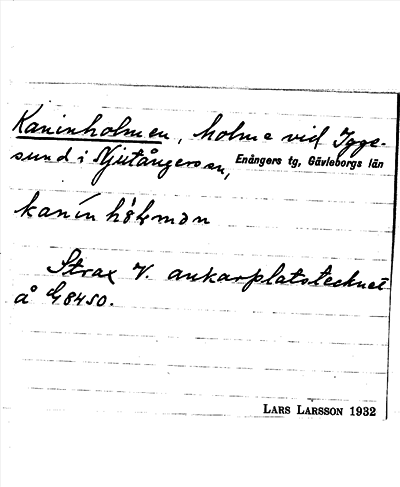 Kaninholmen, holme vid Igge-
sund i Njutångers sn, Enångers tg, Gävleborgs län
kanín hòlmən
Strax V. ankarplatstecknet
å G8450.
LARS LARSSON 1932